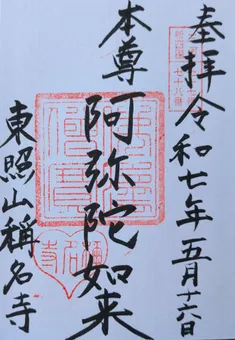 奉拝 令和七年五月十六日
本尊 阿弥陀如来
東照山稱名寺